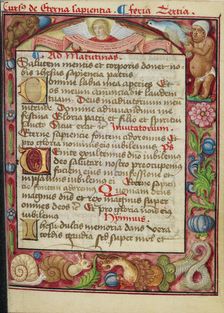 Curso de Eterna sapientia. Feria Tertia.
Ad Matutinas.
Salutem mentis et corporis donet nobis iesus sapientia patris
Domine labia mea aperies Et os meum annunciabit laudem tuam
Deus in adiutorium meum intende Domine ad adiuvandum me festina
Gloria patri et filio et spiritui Sicut erat Invitatorium
Eterne sapientie fontem adoremus Et pro gloria nominis eius iubilemus ps
Venite exultemus domino iubilemus deo salutari nostro preoccupemus
faciem eius in confessione et in psalmis iubilemus ei Eterne sapientie
fontem adoremus Quoniam deus magnus dominus et rex magnus super
omnes deos Et pro gloria
iubilemus Hymnus.
Ihesu dulcis memoria dans vera
cordis gaudia sed super mel et